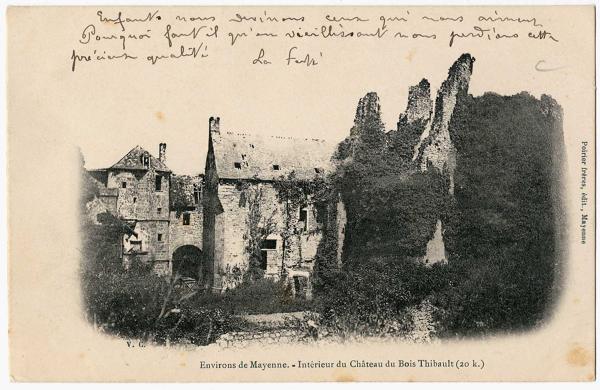 Enfants nous devinons ceux qui nous aiment
Pourquoi faut il qu'en vieillissant nous perdions cette
précieuse qualité
La Ferté
Poirier frères, édit., Mayenne
V. G.
Environs de Mayenne. - Intérieur du Château du Bois Thibault (20 k.)